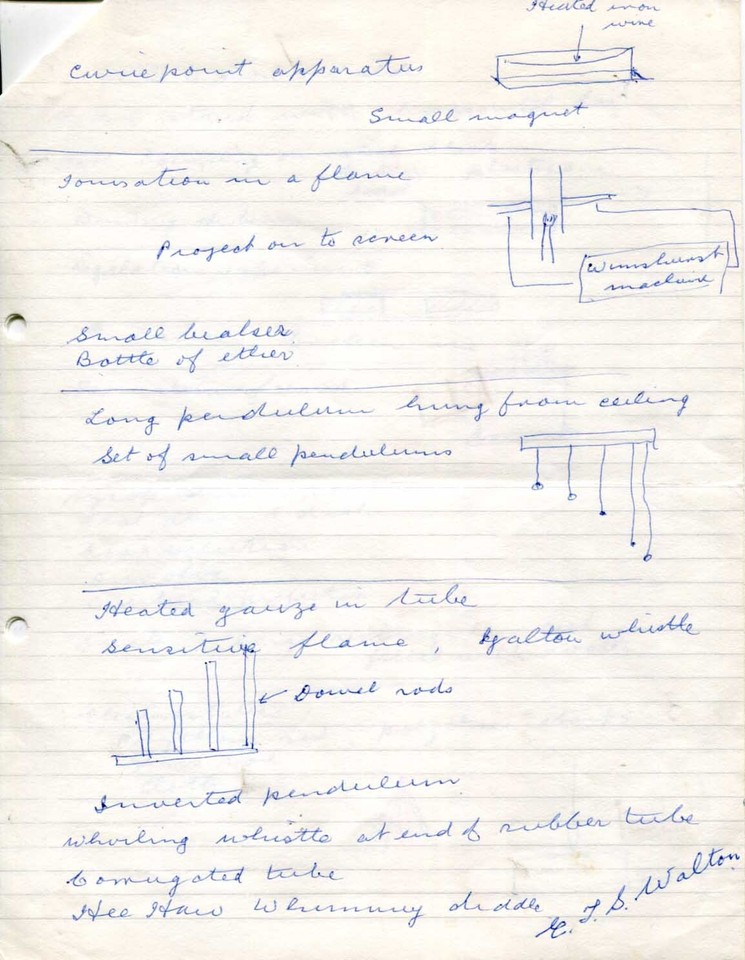 Heated iron
wire
Curie point apparatus
Small magnet
Ionisation in a flame
Project on to screen
Wimshurst
machine
Small beaker
Bottle of ether
Long pendulum hung from ceiling
Set of small pendulums
Heated gauze in tube
Sensitive flame, Galton whistle
Dowel rods
Inverted pendulum
Whirling whistle at end of rubber tube
Corrugated tube
Hee Haw Whimmey diddle
E. T. S. Walton